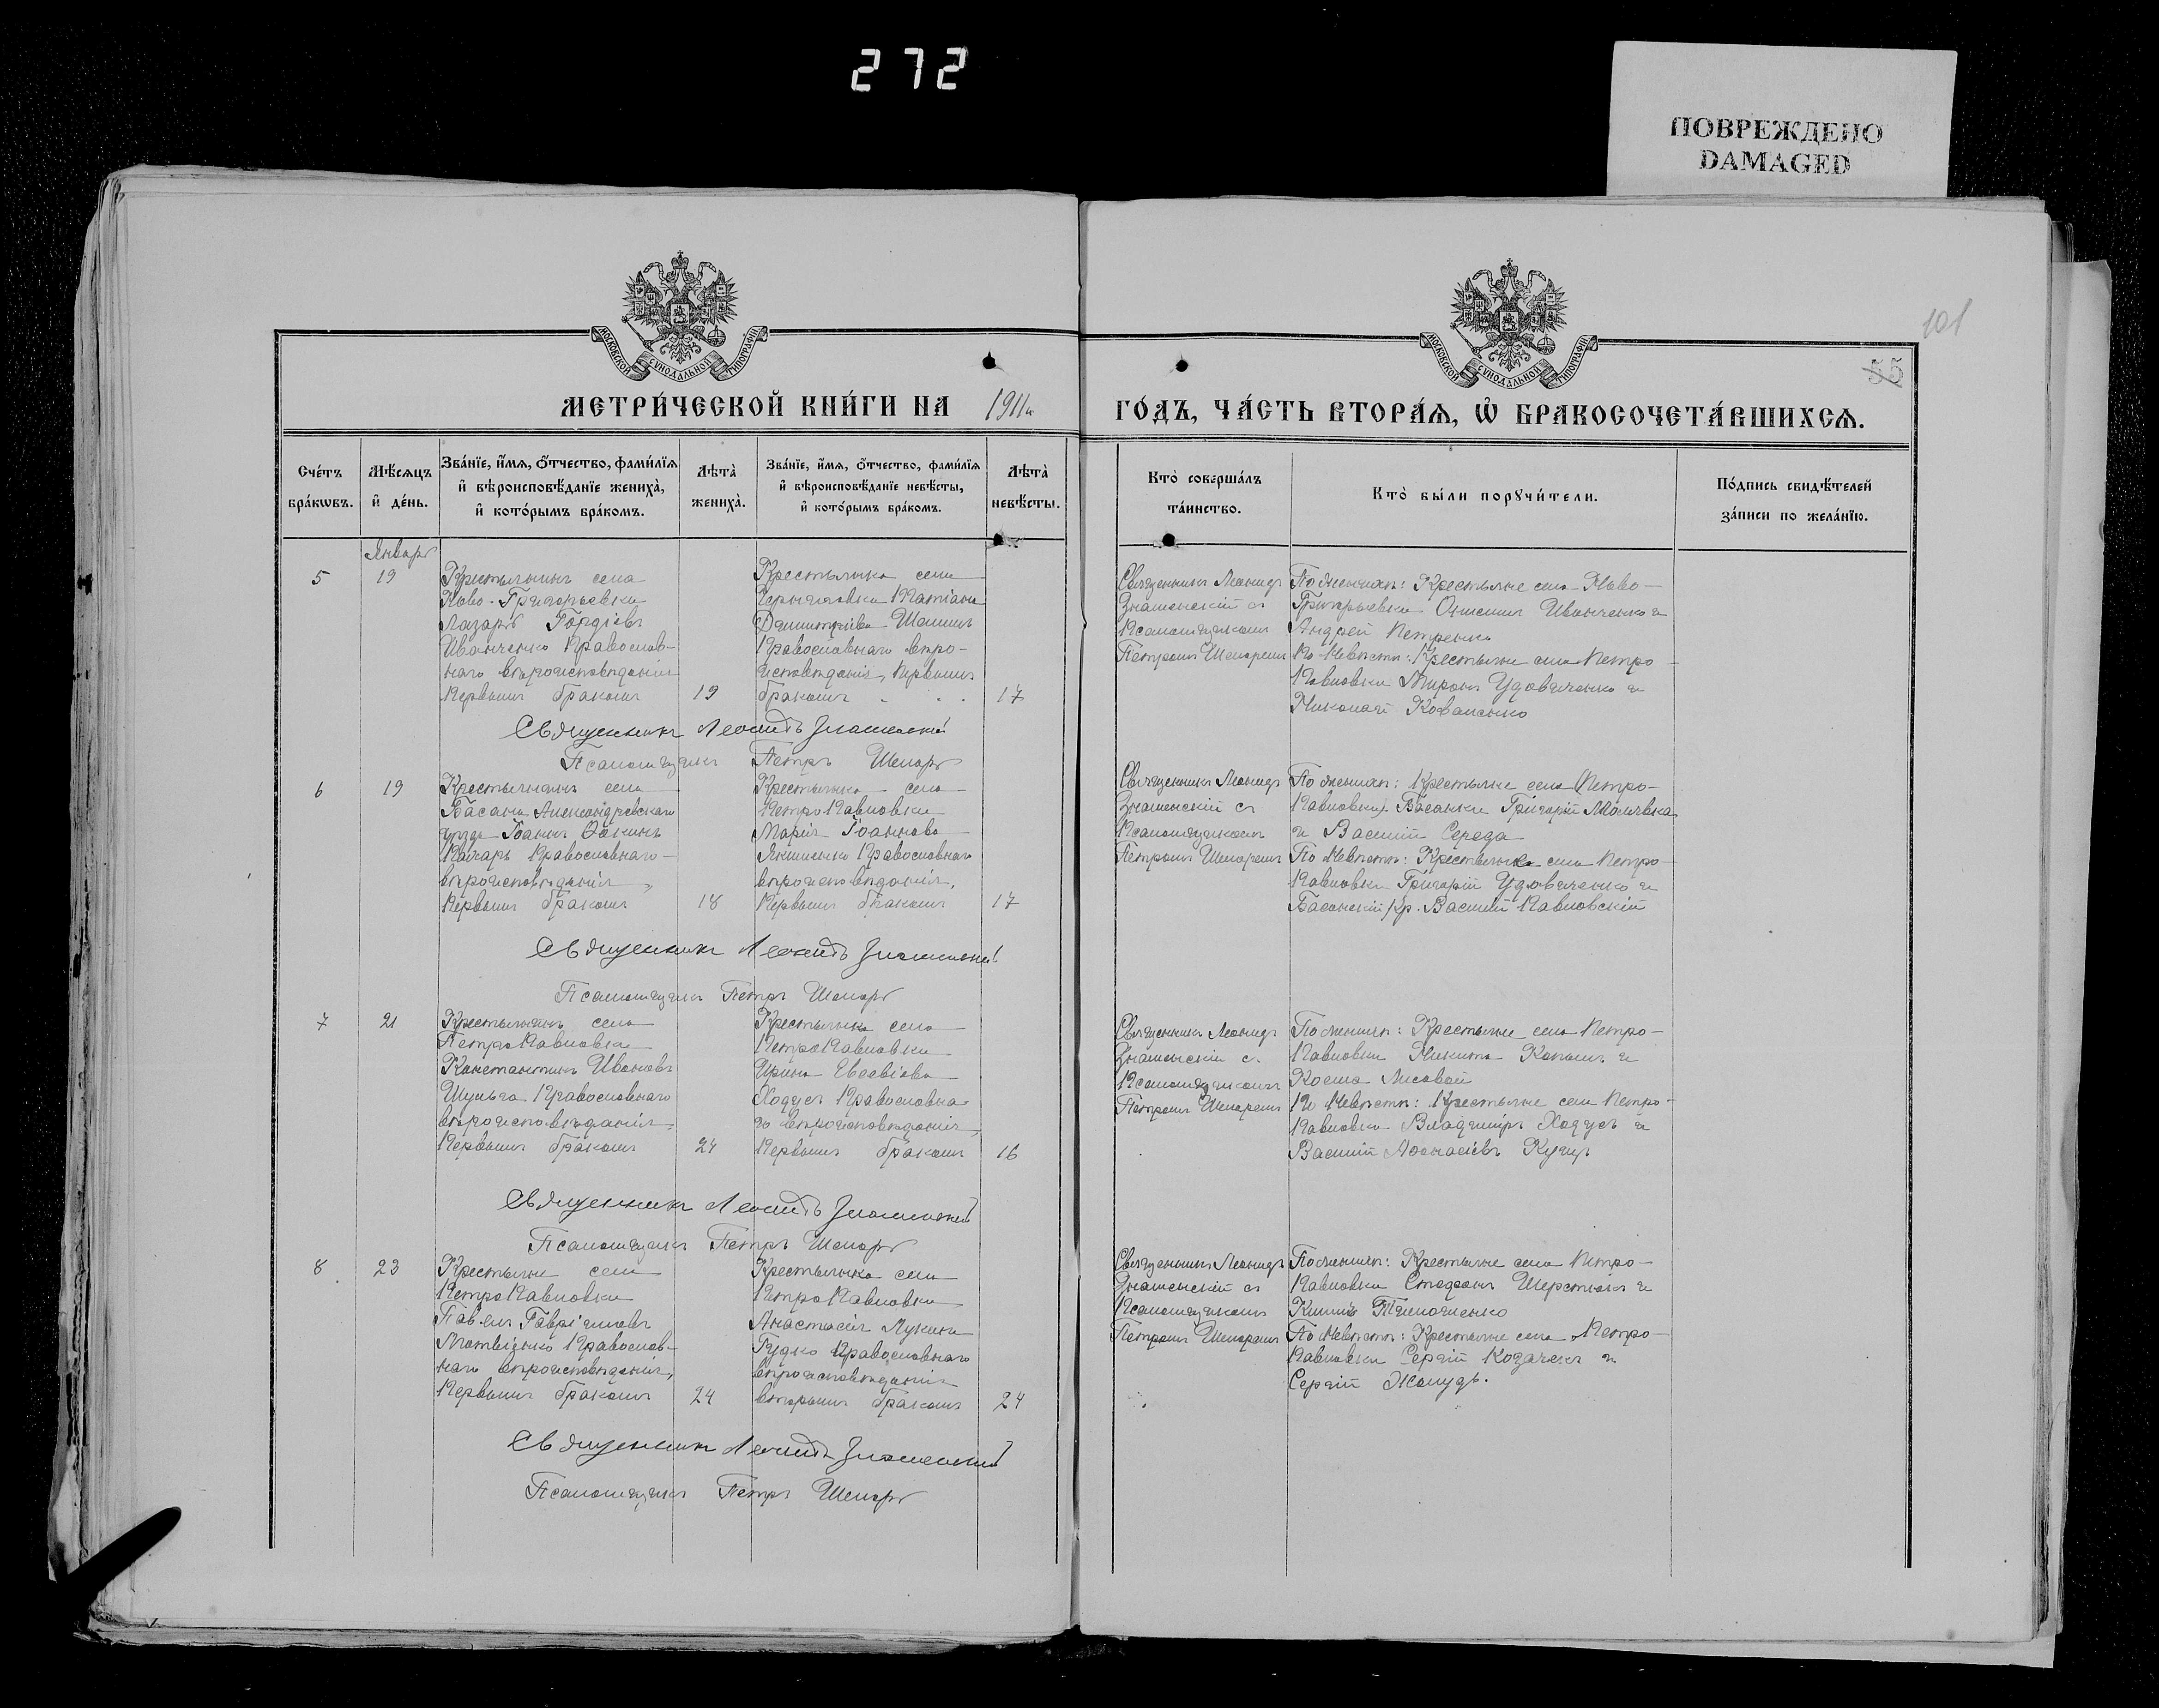 272
ПОВРЕЖДЕНО
DAMAGED
101
55
МОСКОВСКОЙ СУНОДАЛЬНОЙ ТИПОГРАФІИ
МОСКОВСКОЙ СУНОДАЛЬНОЙ ТИПОГРАФІИ
МЕТРИ́ЧЕСКОЙ КНИ́ГИ НА 1911 г. ГО́ДЪ, ЧА́СТЬ ВТОРА́Ѧ, Ѽ БРАКОСОЧЕТА́ВШИХСѦ.
Сче́тъ бра́кωвъ.
Мѣ́сяцъ и҆ де́нь.
Зва́нїе, и҆́мѧ, о҆́тчество, фами́лїѧ и҆ вѣроисповѣ́данїе женихà, и҆ кото́рымъ бра́комъ.
Лѣ́тà женихà.
Зва́нїе, и҆́мѧ, о҆́тчество, фами́лїѧ и҆ вѣроисповѣ́данїе невѣ́сты, и҆ кото́рымъ бра́комъ.
Лѣ́тà невѣ́сты.
Кто̀ соверша́лъ та́инство.
Кто̀ бы́ли порꙋчи́тели.
По́дпись свидѣ́телей за́писи по жела́нїю.
Январь
5
19
Крестьянинъ села
Ново-Григорьевки
Лазарь Гордіевъ
Иванченко Православ-
наго вѣроисповѣданія
Первымъ бракомъ
19
Крестьянка села
Димитріева
Православнаго вѣро-
исповѣданія, Первымъ
бракомъ
17
Священникъ Леонидъ
Знаменскій съ
Псаломщикомъ
Петромъ
По женихѣ: Крестьяне села Ново-
Григорьевки Иванченко и
Андрей Петренко
По Невѣстѣ: Крестьяне села Петро-
Павловки Миронъ Удовиченко и
Николай
Священникъ Леонидъ Знаменскій
Псаломщикъ Петръ
6
19
Крестьянинъ села
Басани Александровскаго
уѣзда Іоаннъ
Православнаго
вѣроисповѣданія,
Первымъ бракомъ
18
Крестьянка села
Петропавловки
Марія Іоаннова
Православнаго
вѣроисповѣданія,
Первымъ бракомъ
17
Священникъ Леонидъ
Знаменскій съ
Псаломщикомъ
Петромъ
По женихѣ: Крестьяне села Петро-
Павловки Григорій
и Василій Середа
По Невѣстѣ: Крестьяне села Петро-
Павловки Григорій Удовиченко и
Басанскій кр. Василій Павловскій
Священникъ Леонидъ Знаменскій
Псаломщикъ Петръ
7
21
Крестьянинъ села
Петропавловки
Константинъ Ивановъ
Шульга Православнаго
вѣроисповѣданія,
Первымъ бракомъ
24
Крестьянка села
Петропавловки
Ирина Евсевіева
Ходусъ Православна-
го вѣроисповѣданія,
Первымъ бракомъ
16
Священникъ Леонидъ
Знаменскій съ
Псаломщикомъ
Петромъ
По женихѣ: Крестьяне села Петро-
Павловки Никита и
Косма Лисовой
По Невѣстѣ: Крестьяне села Петро-
Павловки Владиміръ Ходусъ и
Василій Аѳанасіевъ
Священникъ Леонидъ Знаменскій
Псаломщикъ Петръ
8
23
Крестьяне села
Петропавловки
Павелъ Гавріиловъ
Матвіенко Православ-
наго вѣроисповѣданія,
Первымъ бракомъ
24
Крестьянка села
Петропавловки
Анастасія Лукина
Гудко Православнаго
вѣроисповѣданія
вторымъ бракомъ
24
Священникъ Леонидъ
Знаменскій съ
Псаломщикомъ
Петромъ
По женихѣ: Крестьяне села Петро-
Павловки Стефанъ Шерстюкъ и
По Невѣстѣ: Крестьяне села Петро-
Павловки Сергій Козачекъ и
Сергій
Священникъ Леонидъ Знаменскій
Псаломщикъ Петръ